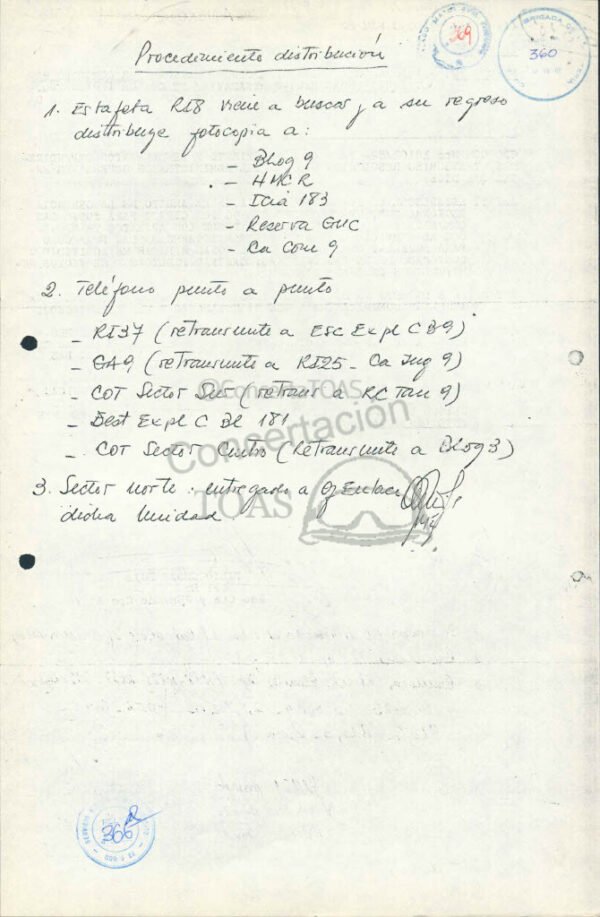 369
BRIGADA DE
360
Procedimiento distribución
1. Estafeta RI8 viene a buscar y a su regreso
distribuye fotocopia a:
- Blog 9
- HMCR
- Icia 183
- Reserva GUC
- Ca Com 9
2. Teléfono punto a punto
- RI37 (retransmite a Esc Expl C B9)
- GA9 (retransmite a RI25 - Ca Ing 9)
- COT Sector Sur (retrans a RC Tan 9)
- Dest Expl C Bl 181
- COT Sector Centro (Retransmite a Blog 3)
3. Sector norte: entregado a Of Enlace
dicha Unidad
Concertación
TOAS
366